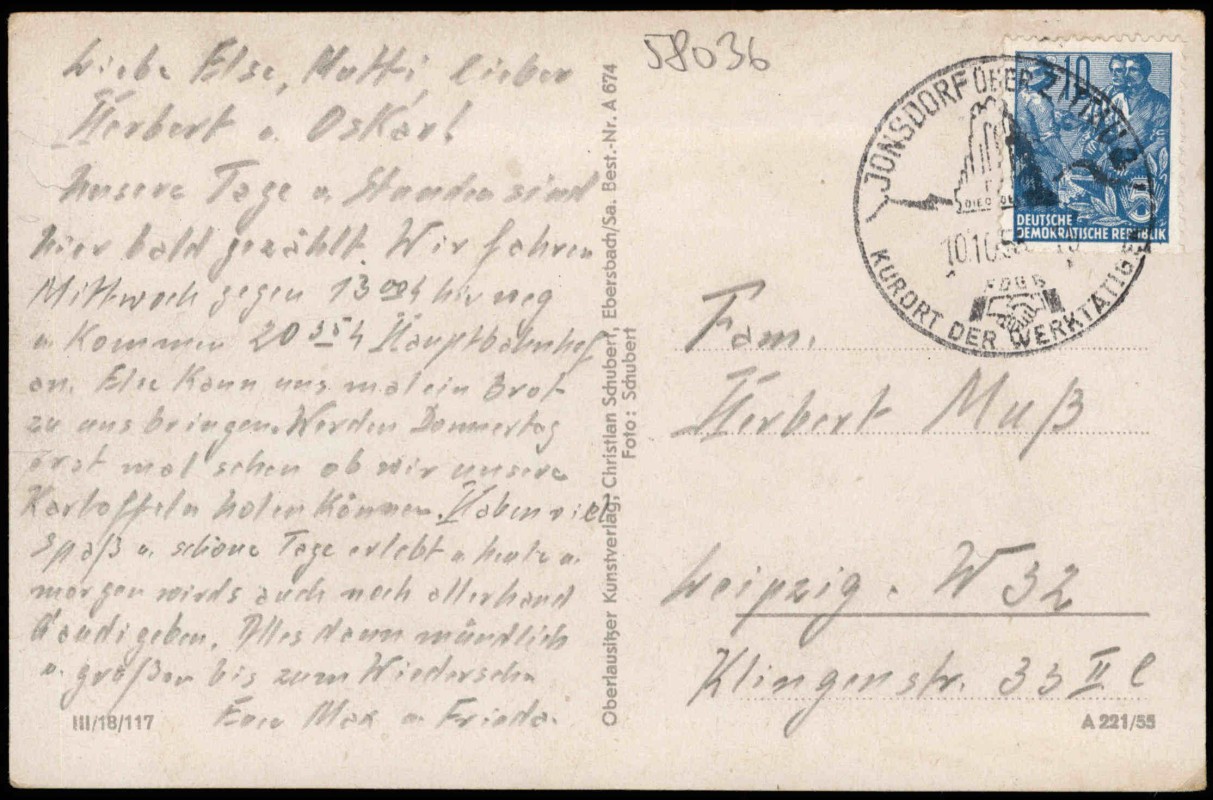 Liebe Else, Mutti, lieber
Herbert u. Oskar!
Unsere Tage u. Stunden sind
hier bald gezählt. Wir fahren
Mittwoch gegen 13 00 h hir weg
u. Kommen 20 35 h Hauptbahnhof
an. Else Kann uns mal ein Brot
zu uns bringen. Werden Donnertag
erst mal sehen ob wir unsere
Kartoffeln holen Können. Haben viel
Spaß u. schöne Tage erlebt u. heute u.
morgen wirds auch noch allerhand
Gaudi geben. Alles dann mündlich
u. grüßen bis zum Wiedersehn
Eure Max u. Frieda.
III/18/117
Oberlausitzer Kunstverlag, Christian Schubert, Ebersbach/Sa. Best.-Nr. A 674
Foto: Schubert
58036
JONSDORF ÜBER ZITTAU
10.10.
FDGB
KURORT DER WERKTÄTIGEN
10
5
DEUTSCHE
DEMOKRATISCHE REPUBLIK
Fam.
Herbert Muß
Leipzig. W 32
Klingenstr. 33 II l
A 221/55